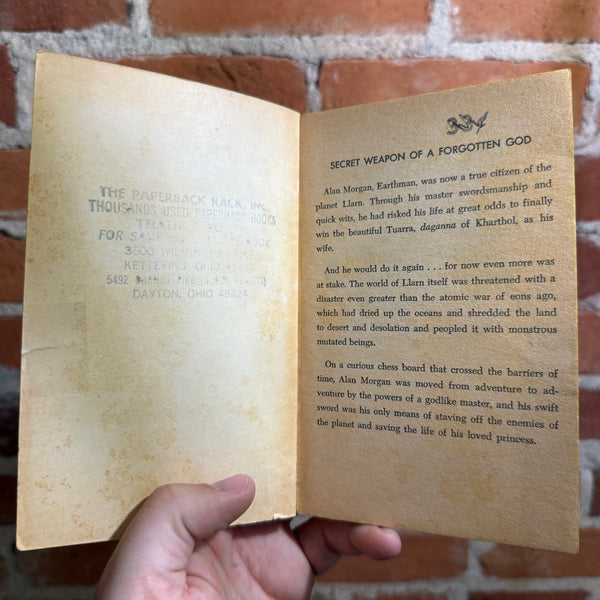 THE PAPERBACK RACK, INC.
THOUSANDS USED PAPERBACK BOOKS
FOR
3500
KETTERING, OHIO
5492
DAYTON, OHIO 45424
SECRET WEAPON OF A FORGOTTEN GOD
Alan Morgan, Earthman, was now a true citizen of the
planet Llarn. Through his master swordsmanship and
quick wits, he had risked his life at great odds to finally
win the beautiful Tuarra, daganna of Kharthol, as his
wife.
And he would do it again . . . for now even more was
at stake. The world of Llarn itself was threatened with a
disaster even greater than the atomic war of eons ago,
which had dried up the oceans and shredded the land
to desert and desolation and peopled it with monstrous
mutated beings.
On a curious chess board that crossed the barriers of
time, Alan Morgan was moved from adventure to ad-
venture by the powers of a godlike master, and his swift
sword was his only means of staving off the enemies of
the planet and saving the life of his loved princess.